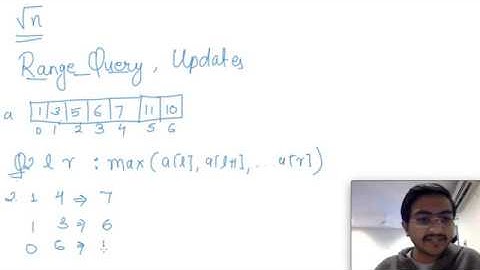 √n
Range Query, Updates
a 1 3 5 6 7 11 10
0 1 2 3 4 5 6
Q 2 l r : max(a[l], a[l+1], ... a[r])
2. 1 4 ⇒ 7
1 3 ⇒ 6
0 6 ⇒